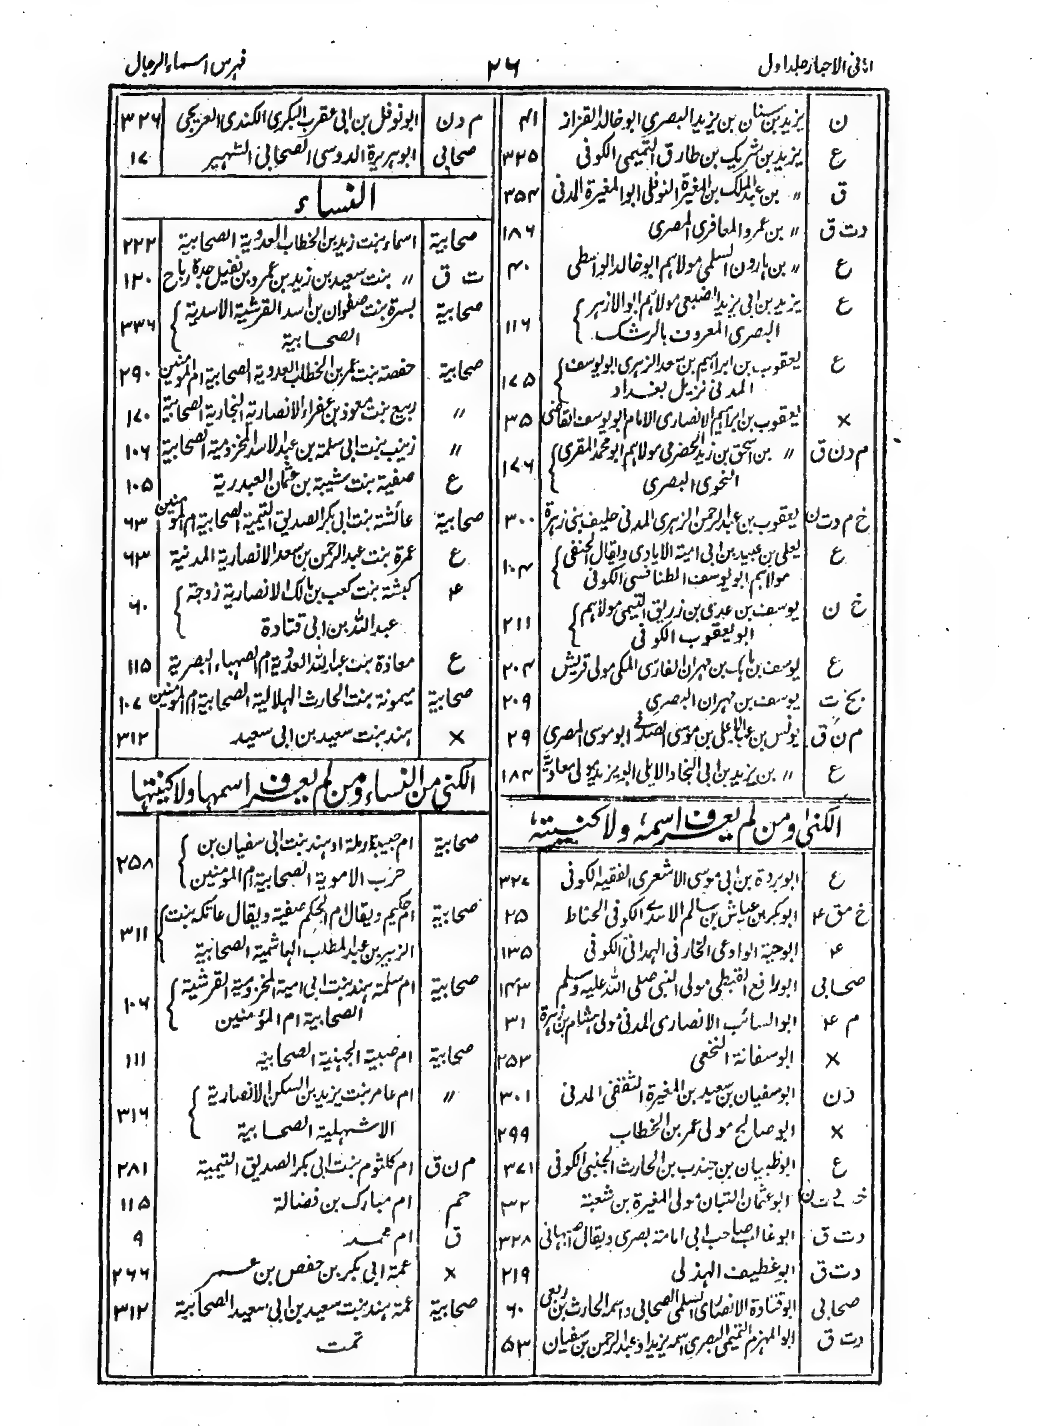 امانی الاحبار جلد اول ۲۶ فہرس اسماء الرجال
ن یزید بن سنان بن یزید البصری ابو خالد القزاز ۴۱
ع یزید بن شریک بن طارق التیمی الکوفی ۳۳۵
ق ” بن عبد الملک بن المغیرۃ النوفلی ابو المغیرۃ المدنی ۳۵۴
د ت ق ” بن عمرو المعافری المصری ۱۸۶
ع ” بن ہارون السلمی مولاہم ابو خالد الواسطی ۴۰
ع یزید بن ابی یزید الضبعی مولاہم ابو الازہر
البصری المعروف بالرشک ۱۱۶
ع یعقوب بن ابراہیم بن سعد الزہری ابو یوسف
المدنی نزیل بغداد ۱۷۵
× یعقوب بن ابراہیم الانصاری الامام ابو یوسف القاضی ۳۵
م د ن ق ” بن اسحٰق بن زید الحضرمی مولاہم ابو محمد المقری
النحوی البصری ۱۷۶
خ م د ت ن یعقوب بن عبد الرحمن الزہری المدنی حلیف بنی زہرۃ ۳۰۰
ع یعلی بن عبید بن ابی امیۃ الایادی ویقال الحنفی
مولاہم ابو یوسف الطنافسی الکوفی ۱۰۴
خ ن یوسف بن عدی بن زریق التیمی مولاہم
ابو یعقوب الکوفی ۲۱۱
ع یوسف بن ماہک بن مہران الفارسی المکی مولی قریش ۲۰۴
بخ ت یوسف بن مہران البصری ۲۰۹
م ن ق یونس بن عبد الاعلی بن موسی الصدفی ابو موسی المصری ۲۹
ع ” بن یزید بن ابی النجاد الایلی ابو یزید مولی معاویۃ ۱۸۴
الکنیٰ ومن لم یعرف اسمہ ولا کنیتہ
ع ابو بردۃ بن ابی موسی الاشعری الفقیہ الکوفی ۳۲۷
خ مق ۴ ابو بکر بن عیاش بن سالم الاسدی الکوفی الحناط ۲۵
۴ ابو حیۃ الوادعی الخارفی الہمدانی الکوفی ۱۳۵
صحابی ابو رافع القبطی مولی النبی صلی اللہ علیہ وسلم ۱۴۳
م ۴ ابو السائب الانصاری المدنی مولی ہشام بن زہرۃ ۳۱
× ابو سفانۃ النخعی ۲۵۳
د ن ابو سفیان بن سعید بن المغیرۃ الثقفی المدنی ۳۰۱
× ابو صالح مولی عمر بن الخطاب ۲۹۹
ع ابو ظبیان بن جندب بن الحارث الجنبی الکوفی ۳۷۱
خـ د ت ن ابو عثمان التبان مولی المغیرۃ بن شعبۃ ۳۲
د ت ق ابو غالب صاحب ابی امامۃ بصری ویقال اصبہانی ۳۲۸
د ت ق ابو غطیف الہذلی ۲۱۹
صحابی ابو قتادۃ الانصاری السلمی الصحابی واسمہ الحارث بن ربعی ۶۰
د ت ق ابو المہزم التمیمی البصری اسمہ یزید او عبد الرحمن بن سفیان ۵۳
م د ن ابو نوفل بن ابی عقرب البکری الکندی العریجی ۳۲۶
صحابی ابو ہریرۃ الدوسی الصحابی الشہیر ۱۷
النساء
صحابیۃ اسماء بنت زید بن الخطاب العدویۃ الصحابیۃ ۲۲۲
ت ق ” بنت سعید بن زید بن عمرو بن نفیل جدۃ رباح ۱۲۰
صحابیۃ بسرۃ بنت صفوان بن اسد القرشیۃ الاسدیۃ
الصحابیۃ ۳۳۶
صحابیۃ حفصۃ بنت عمر بن الخطاب العدویۃ الصحابیۃ ام المؤمنین ۲۹۰
” ربیع بنت معوذ بن عفراء الانصاریۃ النجاریۃ الصحابیۃ ۱۷۰
” زینب بنت ابی سلمۃ بن عبد الاسد المخزومیۃ الصحابیۃ ۱۰۶
ع صفیۃ بنت شیبۃ بن عثمان العبدریۃ ۱۰۵
صحابیۃ عائشۃ بنت ابی بکر الصدیق التیمیۃ الصحابیۃ ام المؤمنین ۶۳
ع عمرۃ بنت عبد الرحمن بن سعد الانصاریۃ المدنیۃ ۶۳
۴ کبشۃ بنت کعب بن مالک الانصاریۃ زوجۃ
عبد اللہ بن ابی قتادۃ ۶۰
ع معاذۃ بنت عبد اللہ العدویۃ ام الصہباء البصریۃ ۱۱۵
صحابیۃ میمونۃ بنت الحارث الہلالیۃ الصحابیۃ ام المؤمنین ۱۰۷
× ہند بنت سعید بن ابی سعید ۳۱۲
الکنی من النساء ومن لم یعرف اسمہا ولا کنیتہا
صحابیۃ ام حبیبۃ رملۃ او ہند بنت ابی سفیان بن
حرب الامویۃ الصحابیۃ ام المؤمنین ۲۵۸
صحابیۃ ام حکیم ویقال ام الحکم صفیۃ ویقال عاتکۃ بنت
الزبیر بن عبد المطلب الہاشمیۃ الصحابیۃ ۳۱۱
صحابیۃ ام سلمۃ ہند بنت ابی امیۃ المخزومیۃ القرشیۃ
الصحابیۃ ام المؤمنین ۱۰۶
صحابیۃ ام صبیۃ الجہنیۃ الصحابیۃ ۱۱۱
” ام عامر بنت یزید بن السکن الانصاریۃ
الاشہلیۃ الصحابیۃ ۳۱۶
م ن ق ام کلثوم بنت ابی بکر الصدیق التیمیۃ ۲۸۱
حم ام مبارک بن فضالۃ ۱۱۵
ق ام محمد ۹
× عمۃ ابی بکر بن حفص بن عمر ۲۶۶
صحابیۃ عمۃ ہند بنت سعید بن ابی سعید الصحابیۃ ۳۱۲
تمت